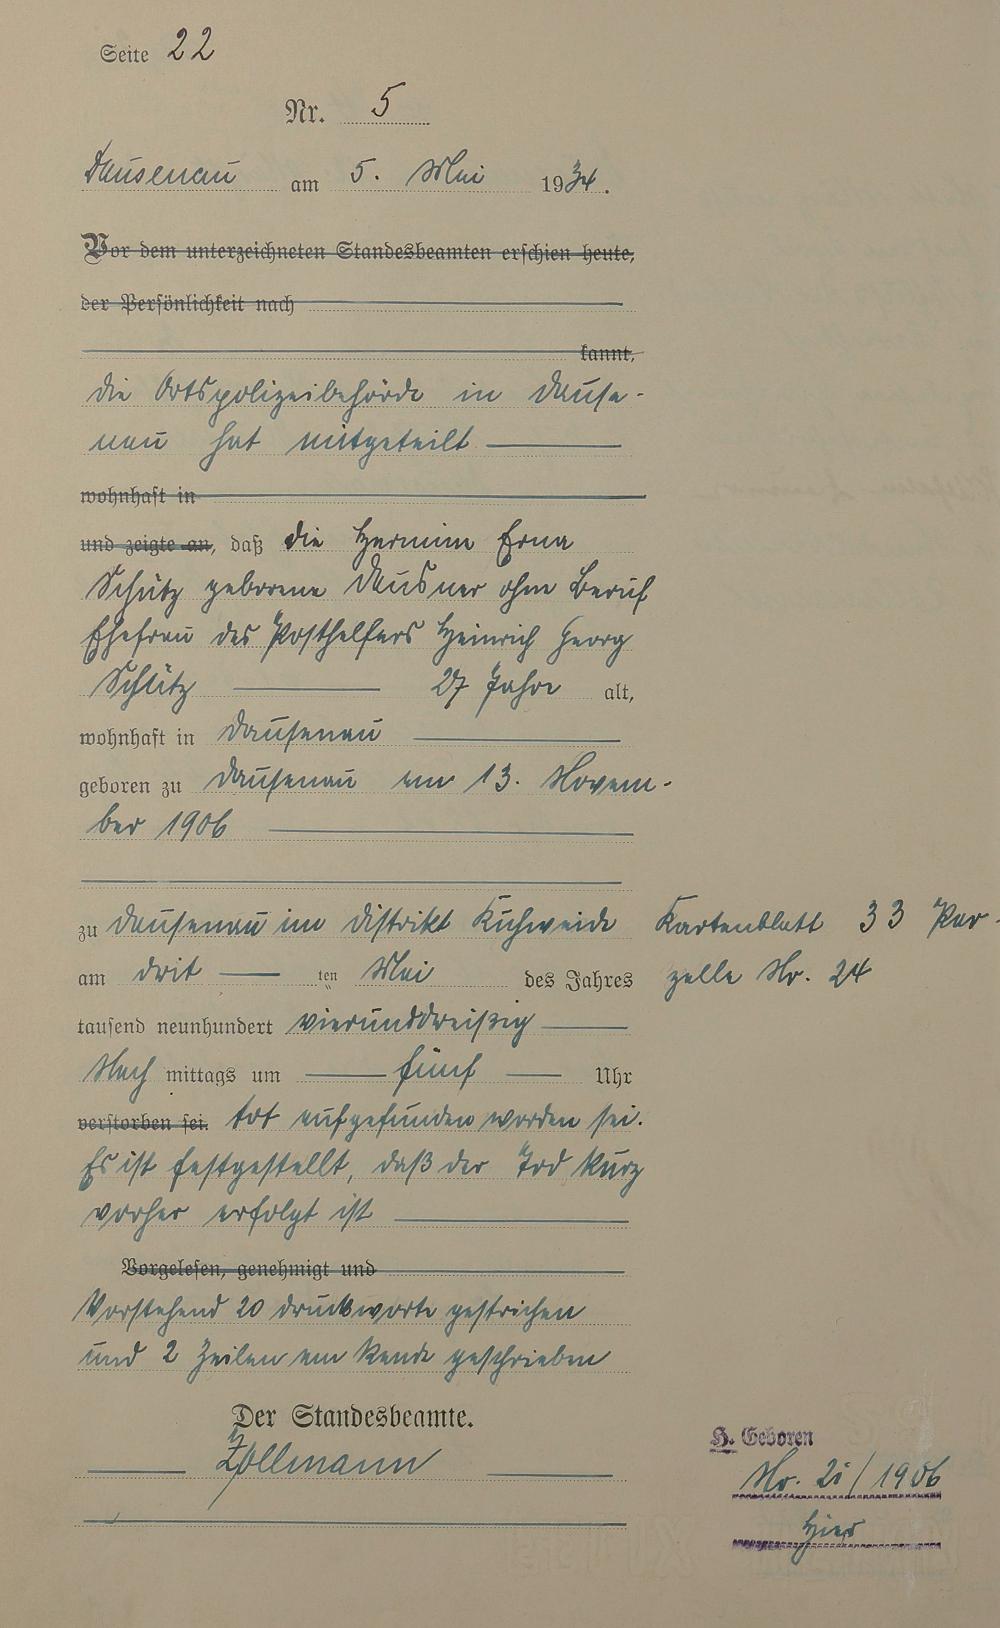 Seite 22
Nr. 5
Dausenau am 5. Mai 1934.
Vor dem unterzeichneten Standesbeamten erschien heute,
der Persönlichkeit nach
kannt,
die Ortspolizeibehörde in Dause-
nau hat mitgeteilt
wohnhaft in
und zeigte an, daß die Hermine Erna
Schütz geborene Dausner ohne Beruf
Ehefrau des Posthelfers Heinrich Georg
Schütz 27 Jahre alt,
wohnhaft in Dausenau
geboren zu Dausenau am 13. Novem-
ber 1906
zu Dausenau im Distrikt Kuhweide Kartenblatt 33 Par-
am drit ten Mai des Jahres zelle Nr. 24
tausend neunhundert vierunddreißig
Nach mittags um fünf Uhr
verstorben sei. tot aufgefunden worden sei.
Es ist festgestellt, daß der Tod kurz
vorher erfolgt ist
Vorgelesen, genehmigt und
Vorstehend 20 Druckworte gestrichen
und 2 Zeilen am Rande geschrieben
Der Standesbeamte.
Zollmann
H. Geboren
Nr. 21/1906
hier